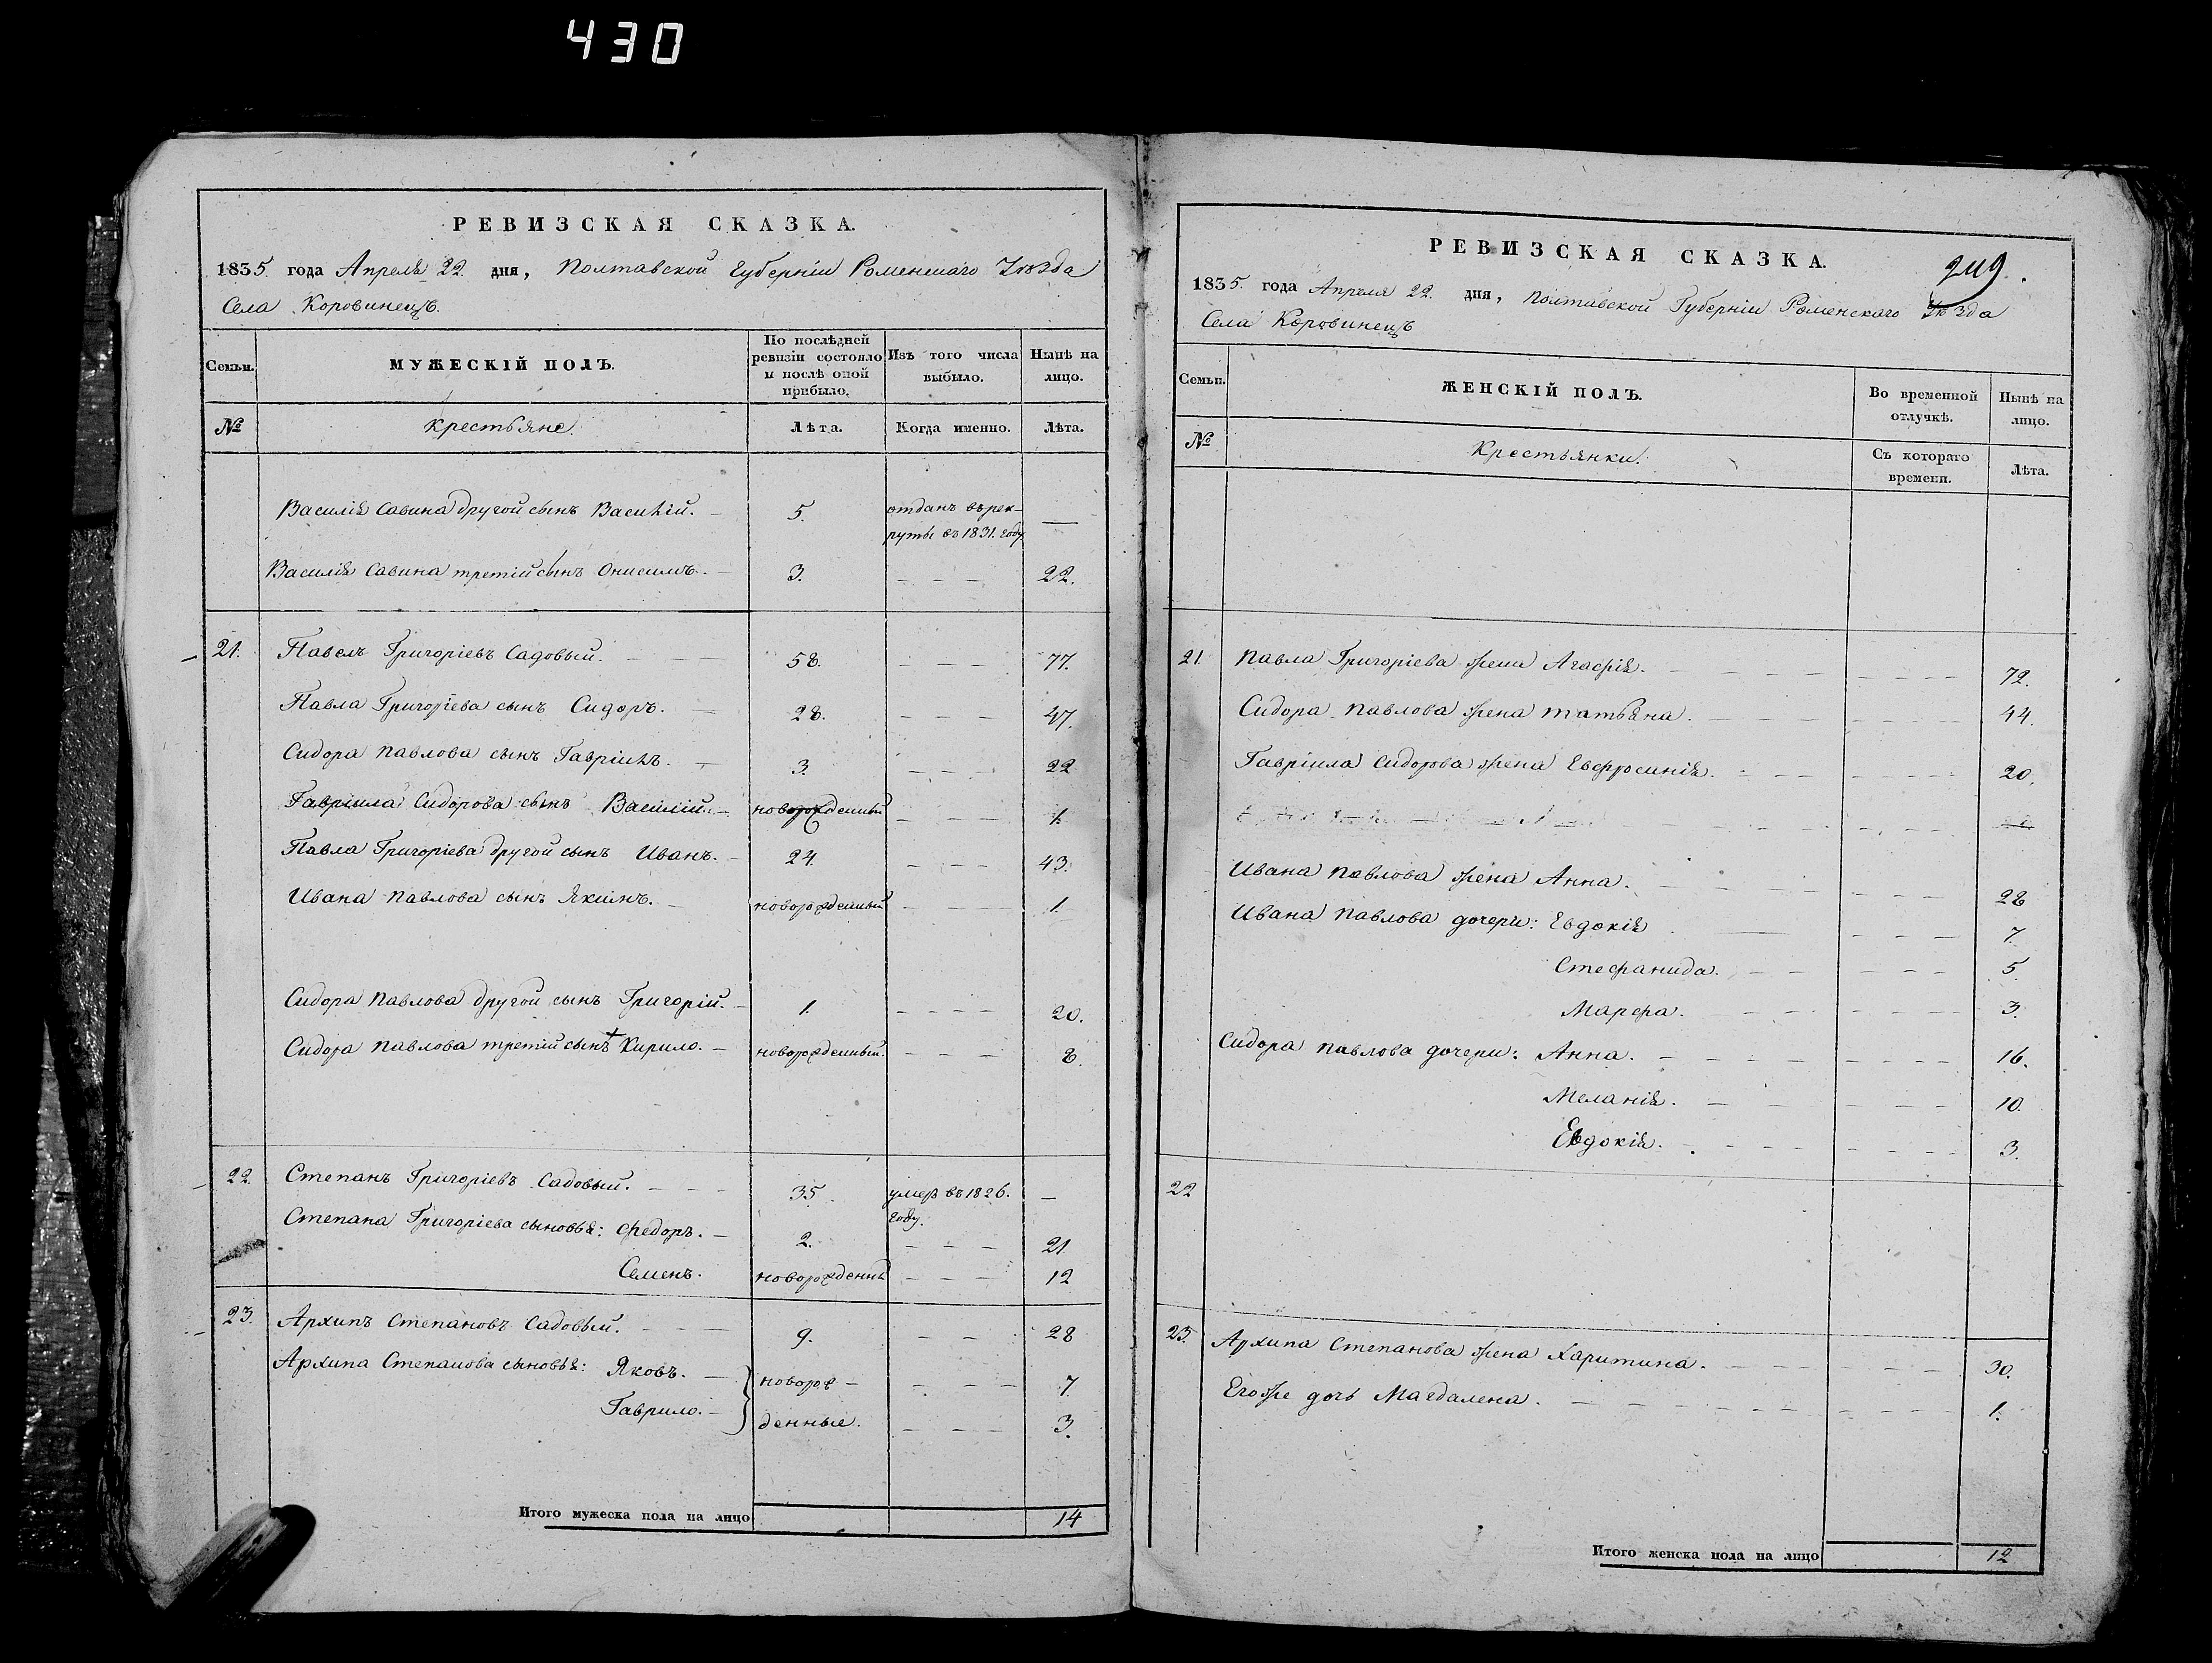 430
РЕВИЗСКАЯ СКАЗКА.
1835. года Апреля 22. дня, Полтавской Губерніи Роменскаго Уѣзда
Села Коровинецъ.
Семьи.
МУЖЕСКІЙ ПОЛЪ.
По послѣдней ревизіи состояло и послѣ оной прибыло.
Изъ того числа выбыло.
Нынѣ на лицо.
№
Крестьяне.
Лѣта.
Когда именно.
Лѣта.
Василія Савина другой сынъ Василій. 5. отданъ въ рек-
руты въ 1831. году —
Василія Савина третій сынъ Онисимъ. 3. 22.
21. Павелъ Григоріевъ Садовый. 58. 77.
Павла Григоріева сынъ Сидоръ. 28. 47.
Сидора Павлова сынъ Гавріилъ. 3. 22
Гавріила Сидорова сынъ Василій. новорожденный 1.
Павла Григоріева другой сынъ Иванъ. 24. 43.
Ивана Павлова сынъ Якимъ. новорожденный 1.
Сидора Павлова другой сынъ Григорій. 1. 20.
Сидора Павлова третій сынъ Кирило. новорожденный. 8.
22. Степанъ Григоріевъ Садовый. 35. умеръ въ 1826. —
году.
Степана Григоріева сыновья: Федоръ. 2. 21
Семенъ. новорожденный 12
23. Архипъ Степановъ Садовый. 9. 28
Архипа Степанова сыновья: Яковъ. новорож- 7
Гаврило. денные. 3.
Итого мужеска пола на лицо 14
РЕВИЗСКАЯ СКАЗКА.
249.
1835. года Апреля 22. дня, Полтавской Губерніи Роменскаго Уѣзда
Села Коровинецъ
Семьи.
ЖЕНСКІЙ ПОЛЪ.
Во временной отлучкѣ.
Нынѣ на лицо.
№
Крестьянки.
Съ котораго времени.
Лѣта.
21. Павла Григоріева жена Агафія. 72.
Сидора Павлова жена Татьяна. 44.
Гавріила Сидорова жена Евфросинія. 20.
Ивана Павлова жена Анна. 28
Ивана Павлова дочери: Евдокія 7.
Стефанида. 5.
Марфа. 3.
Сидора Павлова дочери: Анна. 16.
Меланія. 10.
Евдокія. 3.
22
23. Архипа Степанова жена Харитина. 30.
Егоже дочь Магдалена. 1.
Итого женска пола на лицо 12